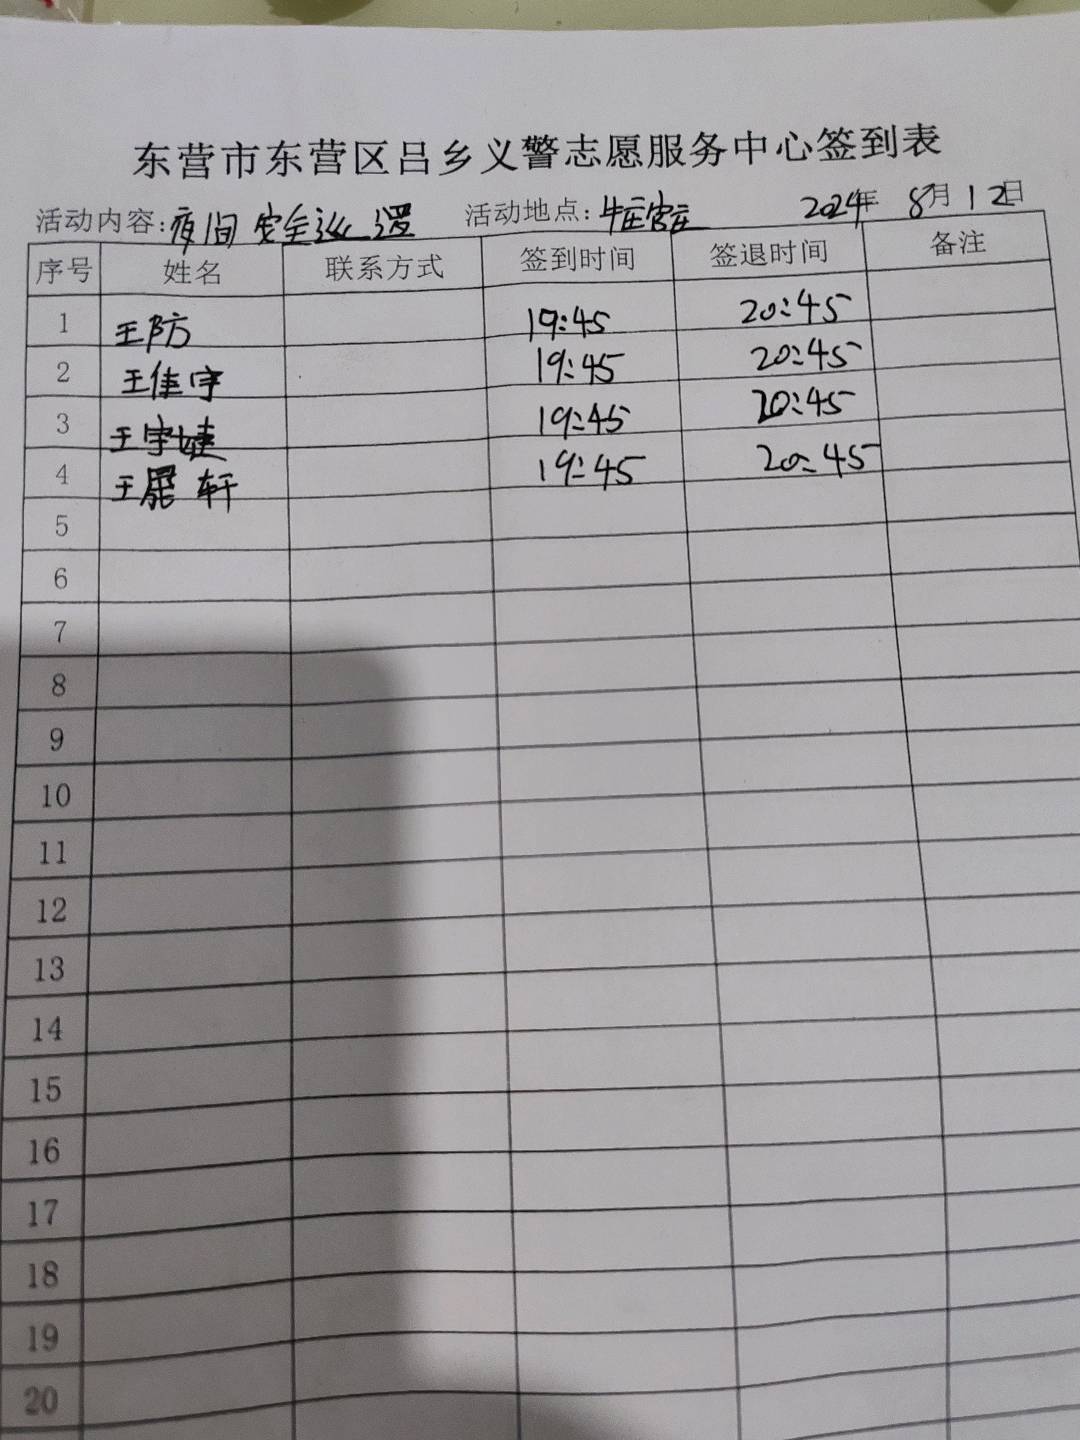 东营市东营区吕乡义警志愿服务中心签到表
活动内容:夜间安全巡逻 活动地点: 2024年 8月12日
序号 姓名 联系方式 签到时间 签退时间 备注
1 王防 19:45 20:45
2 王佳宇 19:45 20:45
3 王宇婕 19:45 20:45
4 王 轩 19:45 20:45
5
6
7
8
9
10
11
12
13
14
15
16
17
18
19
20